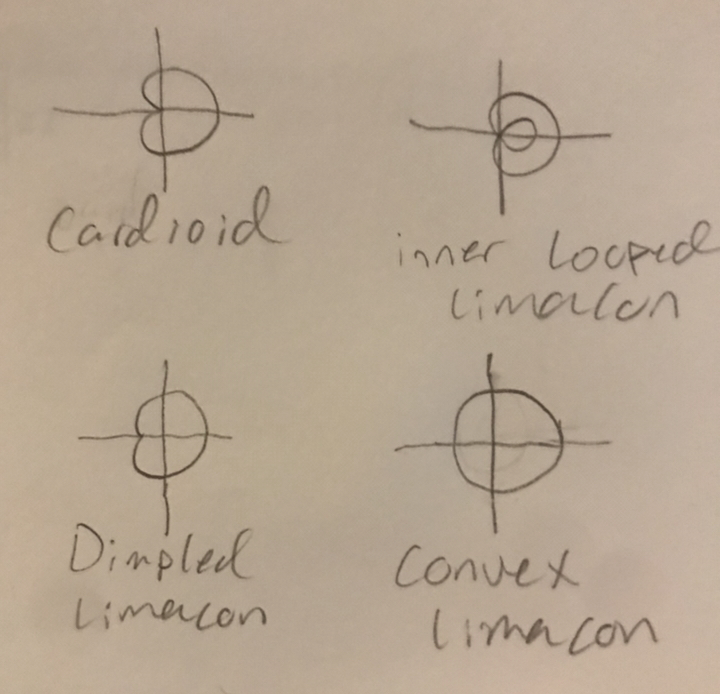 Cardioid
inner Looped
Limacon
Dimpled
Limacon
Convex
Limacon